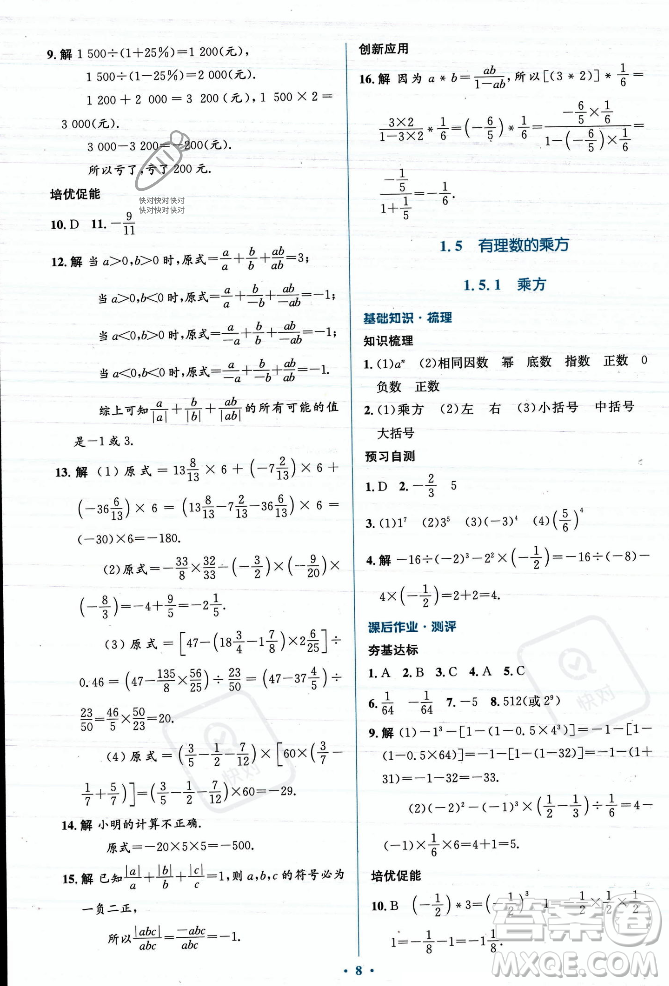 9. 解 1 500÷(1+25%)=1 200(元),
1 500÷(1-25%)=2 000(元).
1 200+2 000=3 200(元), 1 500×2=
3 000(元).
3 000-3 200=-200(元).
所以亏了,亏了 200 元.
培优促能
10. D 11. -9/11
12. 解 当 a>0,b>0 时,原式=a/a+b/b+ab/ab=3;
当 a>0,b<0 时,原式=a/a+b/-b+ab/-ab=-1;
当 a<0,b>0 时,原式=a/-a+b/b+ab/-ab=-1;
当 a<0,b<0 时,原式=a/-a+b/-b+ab/ab=-1.
综上可知a/|a|+b/|b|+ab/|ab|的所有可能的值
是-1或3.
13. 解 (1) 原式=13 8/13×6+(-7 8/13)×6+
(-36 6/13)×6=(13 8/13-7 8/13-36 6/13)×6=
(-30)×6=-180.
(2)原式=-33/8×32/33-(-9/20)×(-20/9)+
(-8/3)=-4+9/8=-23/8.
(3) 原式=[47-(18 3/4-1 7/8)×56/25]÷
0.46=(47-135/8×56/25)÷23/50=(47-189/5)÷
23/50=46/5×50/23=20.
(4) 原式=(3/4-5/2-7/12)×[60×(3/7-
1/7+5/7)]=(3/4-5/2-7/12)×60=-29.
14. 解 小明的计算不正确.
原式=-20×5×5=-500.
15. 解 已知|a|/a+|b|/b+|c|/c=1,a,b,c 的符号必为
一负二正,
所以|abc|/abc=-abc/abc=-1.
创新应用
16. 解 因为 a*b=ab/1-ab,所以[(3*2)]*1/6=
3×2/1-3×2*1/6=(-6/5)*1/6=-6/5×1/6/1-(-6/5)×1/6=
-1/5/1+1/5=-1/6.
1.5 有理数的乘方
1.5.1 乘方
基础知识·梳理
知识梳理
1. (1)aⁿ (2)相同因数 幂 底数 指数 正数 0
负数 正数
2. (1)乘方 (2)左 右 (3)小括号 中括号
大括号
预习自测
1. D 2. -2/3 5
3. (1)1⁷ (2)3⁴ (3)(-5)⁴ (4)(5/6)⁴
4. 解 -16÷(-2)³-2²×(-1/2)=-16÷(-8)-
4×(-1/2)=2+2=4.
课后作业·测评
夯基达标
1. A 2. B 3. C 4. C 5. C
6. 1/64 -1/64 7. -5 8. 512(或2⁹)
9. 解 (1)-1-[1-(1-0.5×4³)]=-1-[1-
(1-0.5×64)]=-1-[1-(1-32)]=-1-(1+
31)=-33.
(2)(-2)²-(-1)³×(1/2-1/3)÷1/6-1/2=4-
(-1)×1/6×6=4+1=5.
培优促能
10. B (-1/2)*3=(-1/2)³-1=1/2×1/2×1/2-
1=-1/8-1=-9/8
8
快对快对快对
快对快对快对
快对
快对
答案圈
MXQE.COM